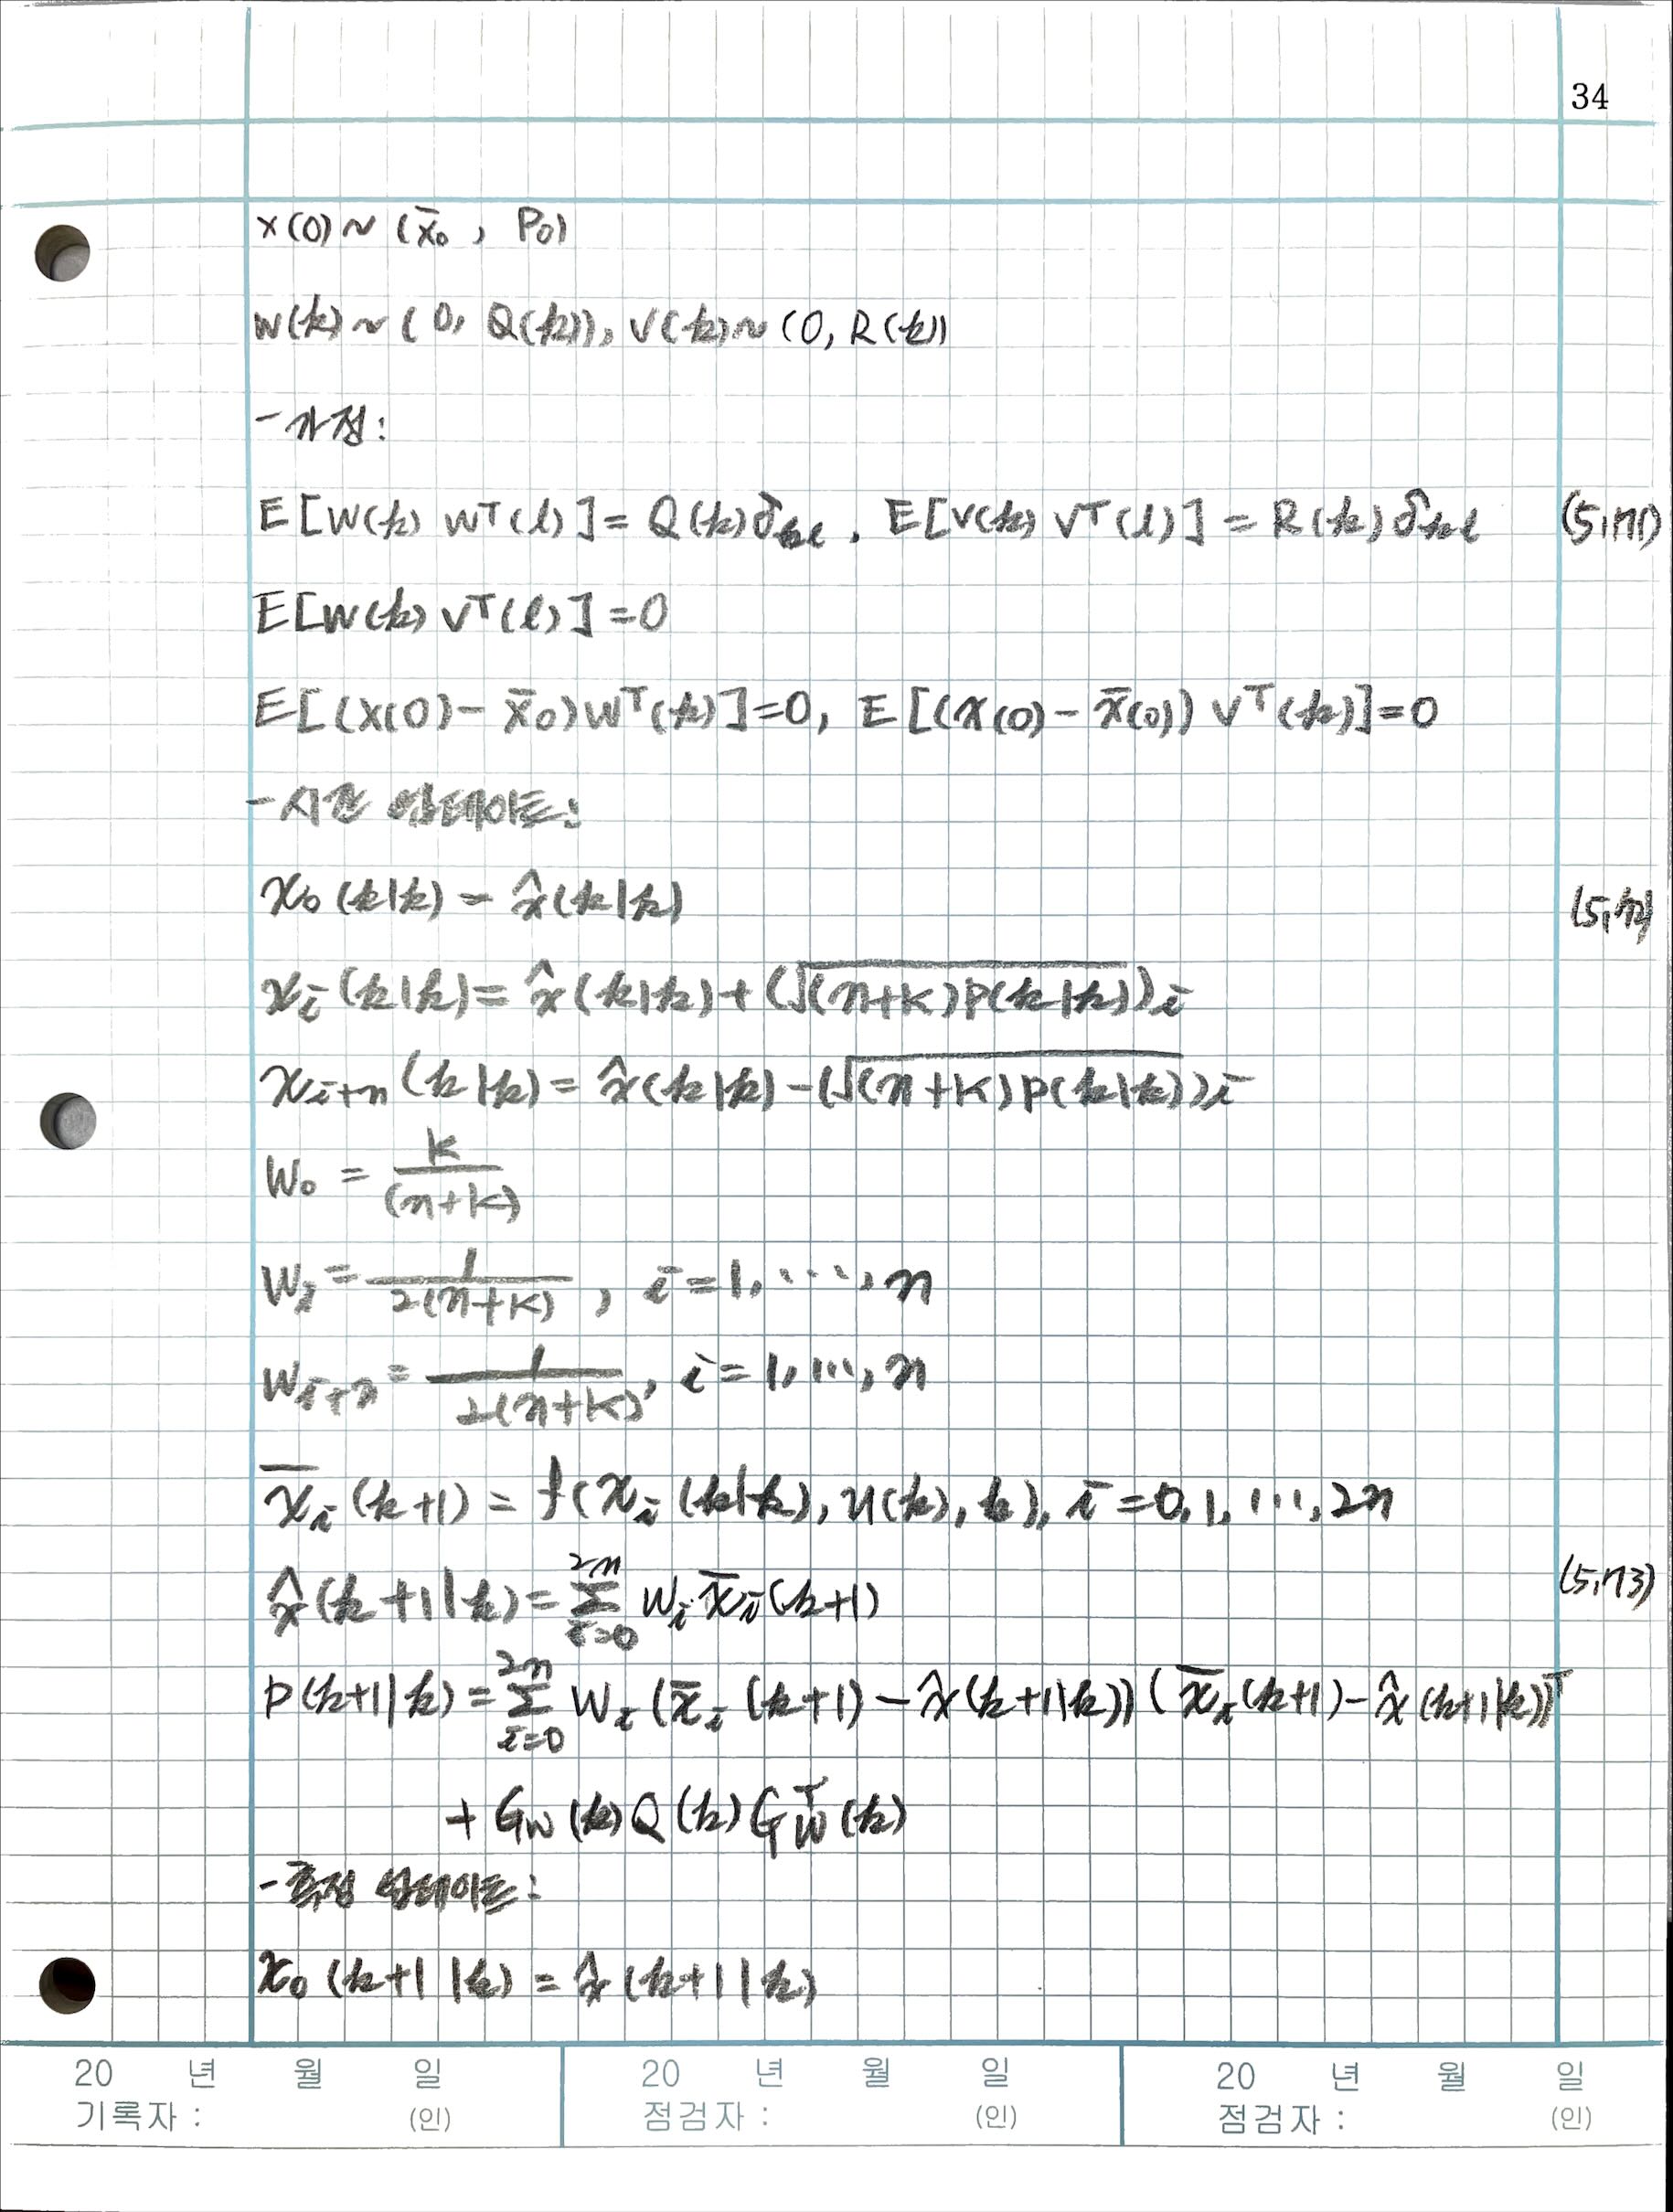 34
x(0) ~ (x̄₀, P₀)
w(k) ~ (0, Q(k)), v(k) ~ (0, R(k))
- 가정:
E[w(k) wᵀ(l)] = Q(k)δₖₗ, E[v(k) vᵀ(l)] = R(k)δₖₗ (5.171)
E[w(k) vᵀ(l)] = 0
E[(x(0) - x̄₀)wᵀ(k)] = 0, E[(x(0) - x̄(0)) vᵀ(k)] = 0
- 시간 업데이트:
x₀(k|k) = x̂(k|k) (5.172)
xᵢ(k|k) = x̂(k|k) + (√((n+κ)P(k|k)))ᵢ
xᵢ₊ₙ(k|k) = x̂(k|k) - (√((n+κ)P(k|k)))ᵢ
W₀ = κ/(n+κ)
Wᵢ = 1/2(n+κ), i = 1, ..., n
Wᵢ₊ₙ = 1/2(n+κ), i = 1, ..., n
x̄ᵢ(k+1) = f(xᵢ(k|k), u(k), k), i = 0, 1, ..., 2n
x̂(k+1|k) = Σᵢ₌₀²ⁿ Wᵢ x̄ᵢ(k+1) (5.173)
P(k+1|k) = Σᵢ₌₀²ⁿ Wᵢ (x̄ᵢ(k+1) - x̂(k+1|k)) (x̄ᵢ(k+1) - x̂(k+1|k))ᵀ
+ G_w(k)Q(k)G_wᵀ(k)
- 측정 업데이트:
x₀(k+1|k) = x̂(k+1|k)
20 년 월 일 20 년 월 일 20 년 월 일
기록자 : (인) 점검자 : (인) 점검자 : (인)